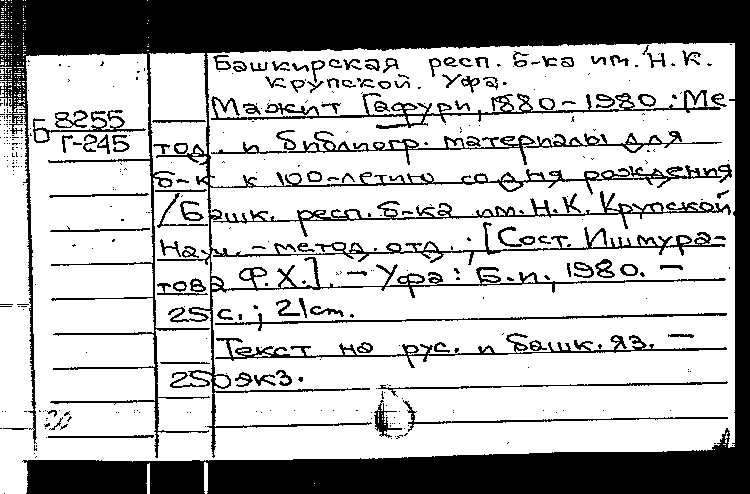 Башкирская респ. б-ка им. Н.К.
Крупской. Уфа.
Мажит Гафури, 1880-1980 : Ме-
Б 8255
Г-245
тод. и библиогр. материалы для
б-к к 100-летию со дня рождения
/Башк. респ. б-ка им. Н.К. Крупской.
Науч.-метод. отд. ; [Сост. Ишмура-
това Ф.Х.]. - Уфа : Б.и., 1980. -
25 с. ; 21 см.
Текст на рус. и башк. яз. -
250 экз.